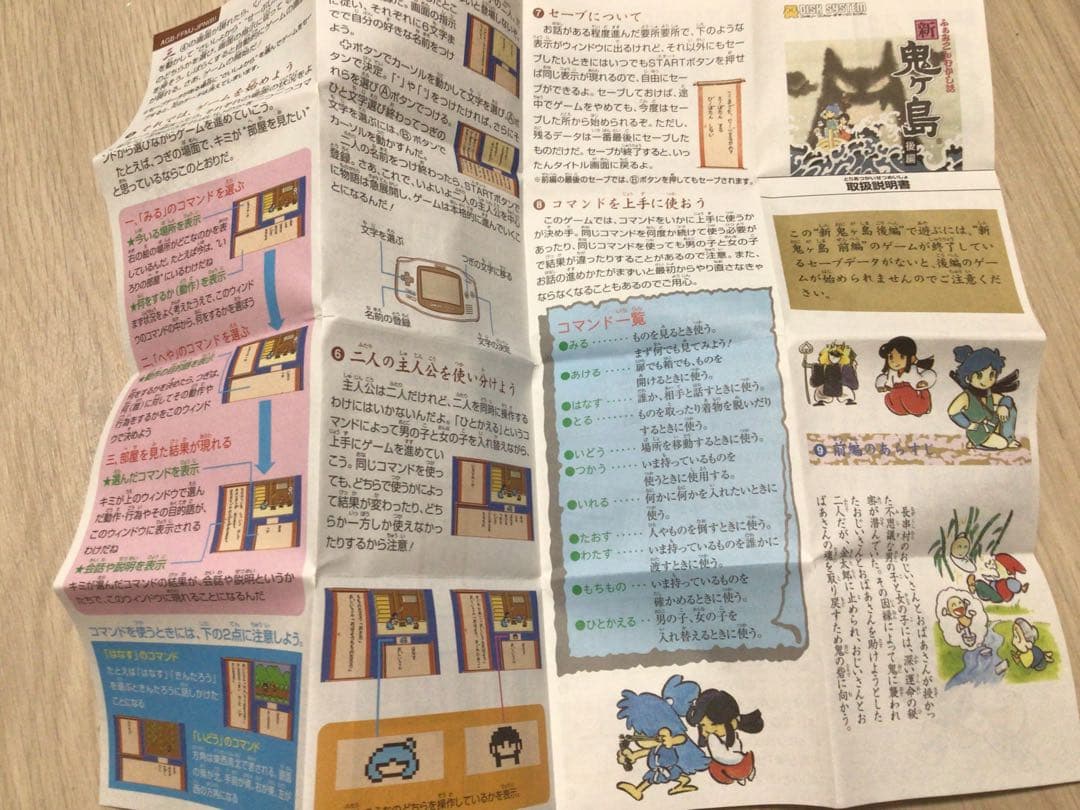 DISK SYSTEM
ふぁみこんむかし話
新
鬼ヶ島
後編
取扱説明書
この"新鬼ヶ島 後編"で遊ぶには、"新
鬼ヶ島 前編"のゲームが終了してい
るセーブデータがないと、後編のゲー
ムが始められませんのでご注意くだ
さい。
❾ 前編のあらすじ
長串村のおじいさんとおばあさんが授かっ
た不思議の男の子と女の子には、深い運命の秘
密が潜んでいた。その因縁によって鬼に襲われ
たおじいさんとおばあさんを助けようとした
二人だが、金太郎に止められ、おじいさんとお
ばあさんの魂を取り戻すため鬼の砦に向かう。
❼ セーブについて
お話がある程度進んだ要所要所で、下のような
表示がウィンドウに出るけれど、それ以外にもセー
ブしたいときにはいつでもSTARTボタンを押せ
ば同じ表示が現れるので、自由にセー
ブができるよ。セーブしておけば、途
中でゲームをやめても、今度はセー
ブした所から始められるぞ。ただし、
残るデータは一番最後にセーブした
ものだけだ。セーブが終了すると、いっ
たんタイトル画面に戻るよ。
※前編の最後のセーブでは、Ⓑボタンを押してもセーブされます。
❽ コマンドを上手に使おう
このゲームでは、コマンドをいかに上手に使うか
が決め手。同じコマンドを何度か続けて使う必要が
あったり、同じコマンドを使っても男の子と女の子
で結果が違ったりすることがあるので注意。また、
お話の進めかたがまずいと最初からやり直さなきゃ
ならなくなることもあるのでご用心。
コマンド一覧
●みる・・・・・・・ものを見るとき使う。
まず何でも見てみよう!
●あける・・・・・扉でも箱でも、ものを
開けるときに使う。
●はなす・・・・・誰か、相手と話すときに使う。
●とる・・・・・・・ものを取ったり着物を脱いだり
するときに使う。
●いどう・・・・・場所を移動するときに使う。
●つかう・・・・・いま持っているものを
使うときに使用する。
●いれる・・・・・何かに何かを入れたいときに
使う。
●たおす・・・・・人やものを倒すときに使う。
●わたす・・・・・いま持っているものを誰かに
渡すときに使う。
●もちもの・・・いま持っているものを
確かめるときに使う。
●ひとかえる・・男の子、女の子を
入れ替えるときに使う。
画面の指示
に従い、それぞれに6文字ま
でで自分の好きな名前をつけ
よう。
✚ボタンでカーソルを動かして文字を選びⒶボ
タンで決定。
ひと文字選び終わってつぎの
文字を選ぶには、Ⓑボタンで
カーソルを動かすんだ。
二人の名前をつけ終わったら、STARTボタンで
登録。さあ、これで、いよいよ二人の主人公を中心
に物語は急展開し、ゲームは本格的に進んでいくこ
とになるんだ!
文字を選ぶ
つぎの文字に移る
名前の登録
文字の決定
❻ 二人の主人公を使い分けよう
主人公は二人だけれど、二人を同時に操作する
わけにはいかないんだよ。「ひとかえる」というコ
マンドによって男の子と女の子を入れ替えながら、
上手にゲームを進めてい
こう。同じコマンドを使っ
ても、どちらで使うかによっ
て結果が変わったり、どち
らか一方しか使えなかっ
たりするから注意!
どちらを操作しているかを表示。
AGB-FFMJ-JPN(B)
ゲームを始めよう
ンドから選びながらゲームを進めていこう。
たとえば、つぎの場面で、キミが"部屋を見たい"
と思っているならこのとおりだ。
一、「みる」のコマンドを選ぶ
★今いる場所を表示
右の絵の場所がどこなのかを表
しているんだ。たとえば今は、"い
ろりの部屋"にいるわけだね
★何をするか(動作)を表示
まず状況をよく考えたうえで、このウィンド
ウのコマンドの中から、何をするかを選ぼう
二、「へや」のコマンドを選ぶ
★動作の目的語を表示
何をするかを決めたら、つぎは、
何(誰)に対してその動作や
行為をするかをこのウィンド
ウで決めよう
三、部屋を見た結果が現れる
★選んだコマンドを表示
キミが上のウィンドウで選ん
だ動作・行為やその目的語が、
このウィンドウに表示される
わけだね
★会話や説明を表示
キミが選んだコマンドの結果が、会話や説明というか
たちで、このウィンドウに現れることになるんだ
コマンドを使うときには、下の2点に注意しよう。
「はなす」のコマンド
たとえば「はなす」「きんたろう」
を選ぶときんたろうに話しかけた
ことになる
「いどう」のコマンド
方角は東西南北で表される。画面
の奥が北、手前が南、右が東、左が
西の方角になる